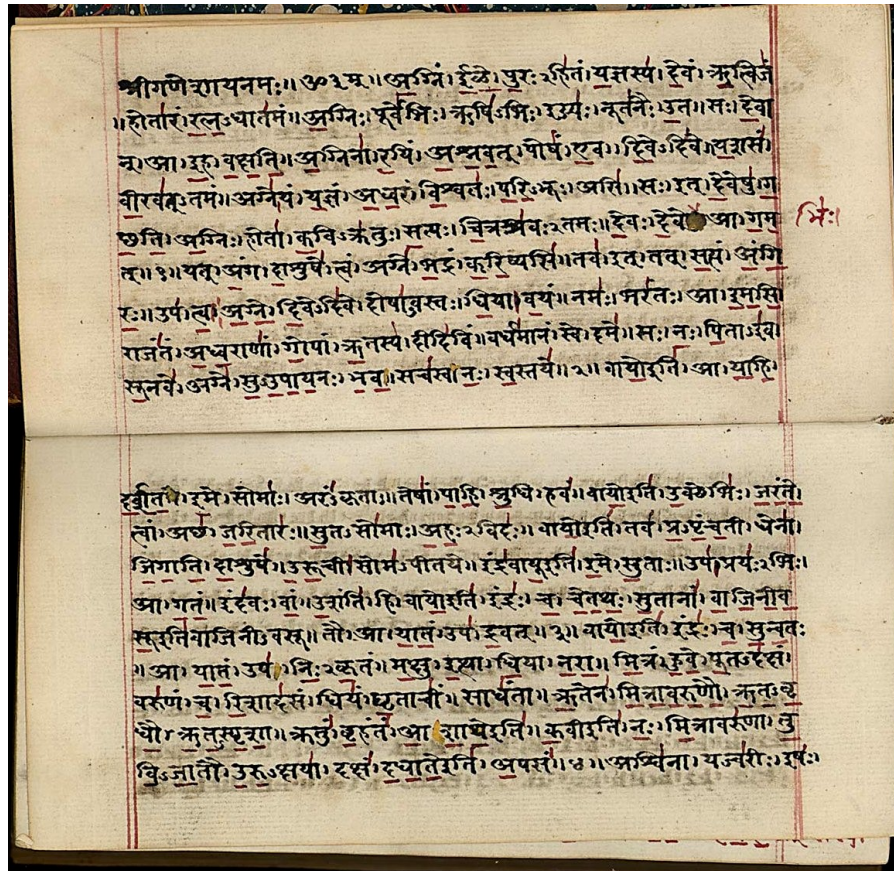 श्रीगणेशायनमः॥ॐ३म्॥अग्निं।ईळे।पुरःऽहितं।यज्ञस्य।देवं।ऋत्विजं
॥होतारं।रत्नऽधातमं॥अग्निः।पूर्वेभिः।ऋषिऽभिः।ईड्यः।नूतनैः।उत॥सः।देवा
न्।आ।इह।वक्षति॥अग्निना।रयिं।अश्नवत्।पोषं।एव।दिवेऽदिवे॥यशसं।
वीरवत्ऽतमं॥अग्ने।यं।यज्ञं।अध्वरं।विश्वतः।परिऽभूः।असि॥सः।इत्।देवेषु।ग
च्छति।अग्निः।होता।कविऽक्रतुः।सत्यः।चित्रश्रवःऽतमः॥देवः।देवे आ।गम
भिः।
त्॥१॥यत्।अंग।दाशुषे।त्वं।अग्ने।भद्रं।करिष्यसि॥तव।इत्।तत्।सत्यं।अंगि
रः॥उप।त्वा।अग्ने।दिवेऽदिवे।दोषाऽवस्तः।धिया।वयं॥नमः।भरंतः।आ।इमसि॥
राजंतं।अध्वराणां।गोपां।ऋतस्य।दीदिविं॥वर्धमानं।स्वे।दमे॥सः।नः।पिताऽइव।
सूनवे।अग्ने।सुऽउपायनः।भव॥सचस्व।नः।स्वस्तये॥२॥वायोइति।आ।याहि।
दर्शत।इमे।सोमाः।अरंऽकृताः॥तेषां।पाहि।श्रुधि।हवं॥वायोइति।उक्थेभिः।जरंते।
त्वां।अच्छ।जरितारः॥सुतऽसोमाः।अहःऽविदः॥वायोइति।तव।प्रऽपृंचती।धेना।
जिगाति।दाशुषे॥उरूची।सोमऽपीतये॥इंद्रवायूइति।इमे।सुताः॥उप।प्रयःऽभिः।
आ।गतं॥इंदवः।वां।उशंति।हि॥वायोइति।इंद्रः।च।चेतथः।सुतानां।वाजिनीव
सूइतिवाजिनीऽवसू॥तौ।आ।यातं।उप।द्रवत्॥३॥वायोइति।इंद्रः।च।सुन्वतः
॥आ।यातं।उप।निःऽकृतं॥मक्षु।इत्था।धिया।नरा॥मित्रं।हुवे।पूतऽदक्षं।
वरुणं।च।रिशादसं॥धियं।घृताचीं॥साधंता॥ऋतेन।मित्रावरुणौ।ऋतऽवृ
धौ।ऋतऽस्पृशा॥क्रतुं।बृहंतं।आशाथेइति॥कवीइति।नः।मित्रावरुणा।तु
विऽजातौ।उरुऽक्षया।दक्षं।दधातेइति।अपसं॥४॥अश्विना।यज्वरीः।इषः।